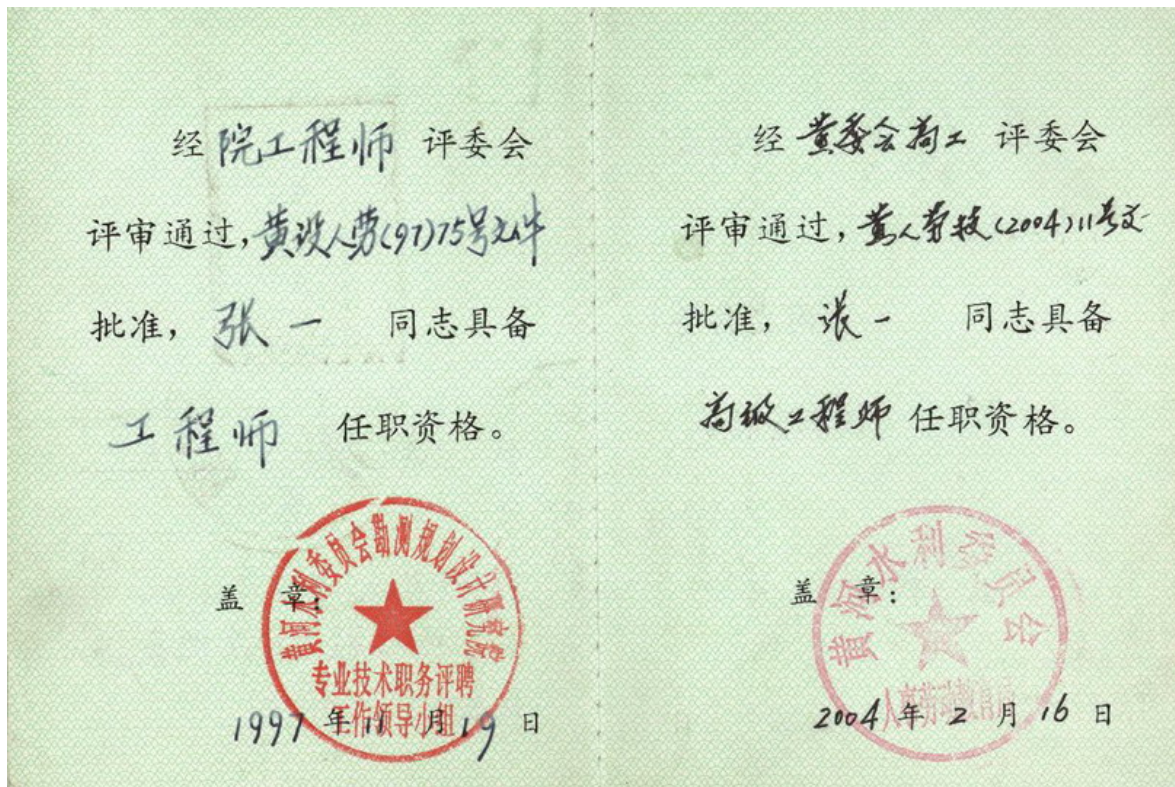 经 院工程师 评委会
评审通过,黄设人劳(97)75号文件
批准, 张一 同志具备
工程师 任职资格。
盖 章:
黄河水利委员会勘测规划设计研究院
专业技术职务评聘
工作领导小组
1997 年 11 月 19 日
经 黄委会高工 评委会
评审通过,黄人劳技(2004)11号文
批准, 张一 同志具备
高级工程师 任职资格。
盖 章:
黄河水利委员会
人事劳动教育局
2004 年 2 月 16 日